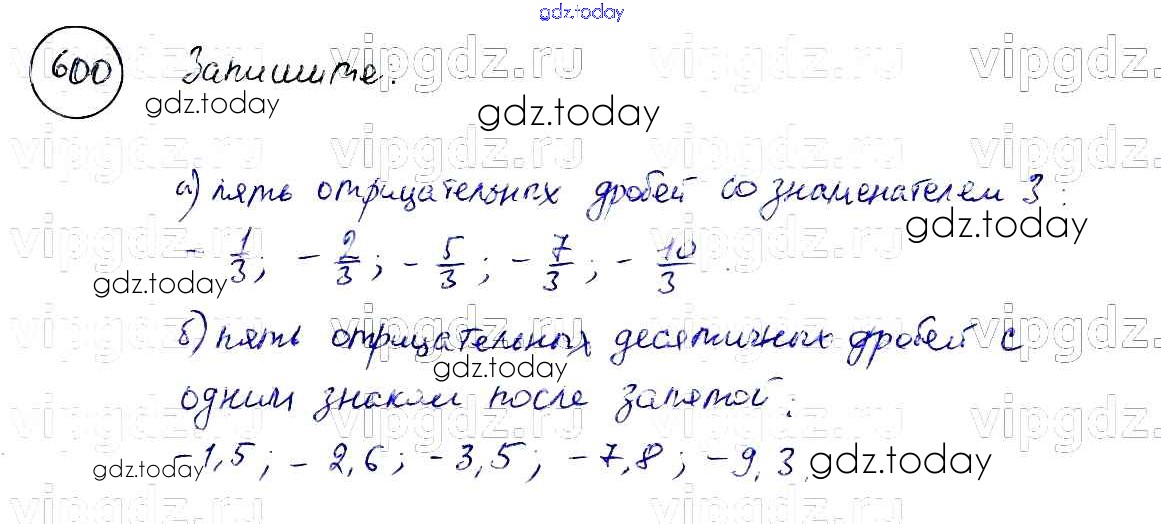 gdz.today
600 Запишите:
а) пять отрицательных дробей со знаменателем 3:
- 1/3; - 2/3; - 5/3; - 7/3; - 10/3.
б) пять отрицательных десятичных дробей с
одним знаком после запятой:
-1,5; -2,6; -3,5; -7,8; -9,3.
vipgdz.ru vipgdz.ru vipgdz.ru vipgdz.ru
gdz.today gdz.today
vipgdz.ru vipgdz.ru vipgdz.ru vipgdz.ru
gdz.today gdz.today
vipgdz.ru vipgdz.ru vipgdz.ru vipgdz.ru
gdz.today
vipgdz.ru vipgdz.ru vipgdz.ru vipgdz.ru
gdz.today gdz.today
vipgdz.ru vipgdz.ru vipgdz.ru vipgdz.ru